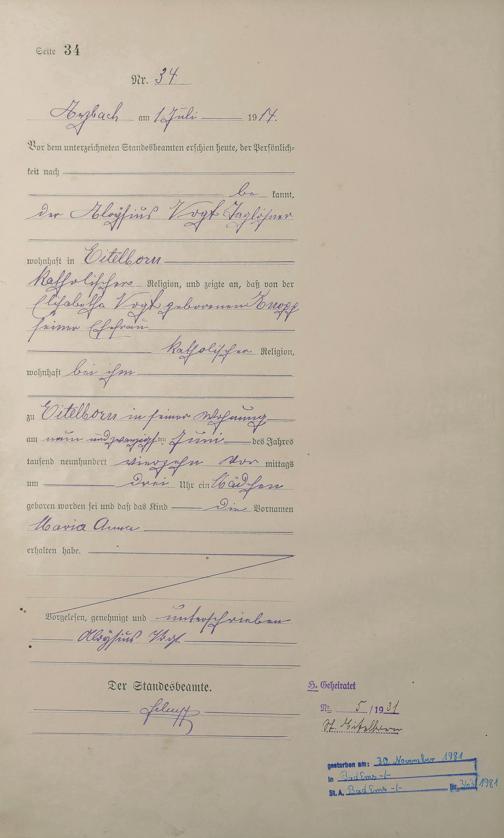 Seite 34
Nr. 34
Arzbach am 1 Juli 1914.
Vor dem unterzeichneten Standesbeamten erschien heute, der Persönlich-
keit nach
be kannt,
der Aloysius Vogt Taglöhner
wohnhaft in Eitelborn
katholischer Religion, und zeigte an, daß von der
Elisabetha Vogt geborenen Knopp
seiner Ehefrau
katholischer Religion,
wohnhaft bei ihm
zu Eitelborn in seiner Wohnung
am neun und zwanzigsten Juni des Jahres
tausend neunhundert vierzehn Vor mittags
um drei Uhr ein Mädchen
geboren worden sei und daß das Kind die Vornamen
Maria Anna
erhalten habe.
Vorgelesen, genehmigt und unterschrieben
Aloysius Vogt
Der Standesbeamte.
H. Geheiratet
Nr. 5 /1931
St. Eitelborn
gestorben am: 30. November 1981
in Bad Ems -/-
St. A. Bad Ems -/- Nr. /1981